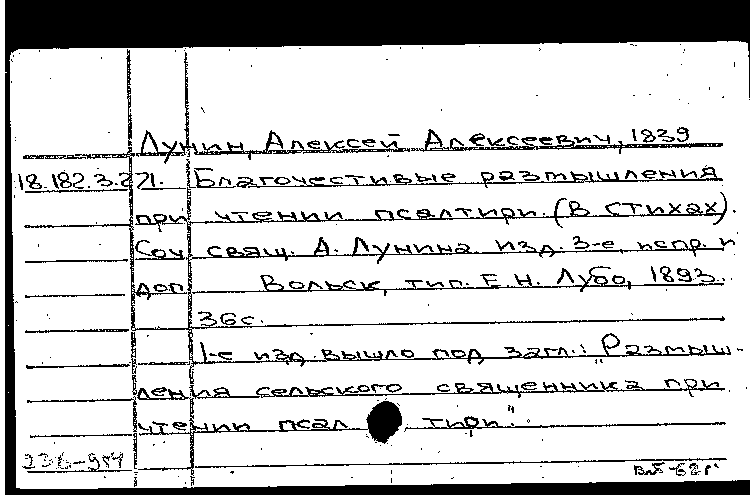 Лунин, Алексей Алексеевич, 1839
18.182.3.271. Благочестивые размышления
при чтении псалтири. (В стихах).
Соч свящ. А. Лунина изд. 3-е, испр. и
доп Вольск, тип. Е.Н. Лубо, 1893.
36с.
1-е изд. вышло под загл.: „Размыш-
ления сельского священника при
чтении псал тири".
236-954